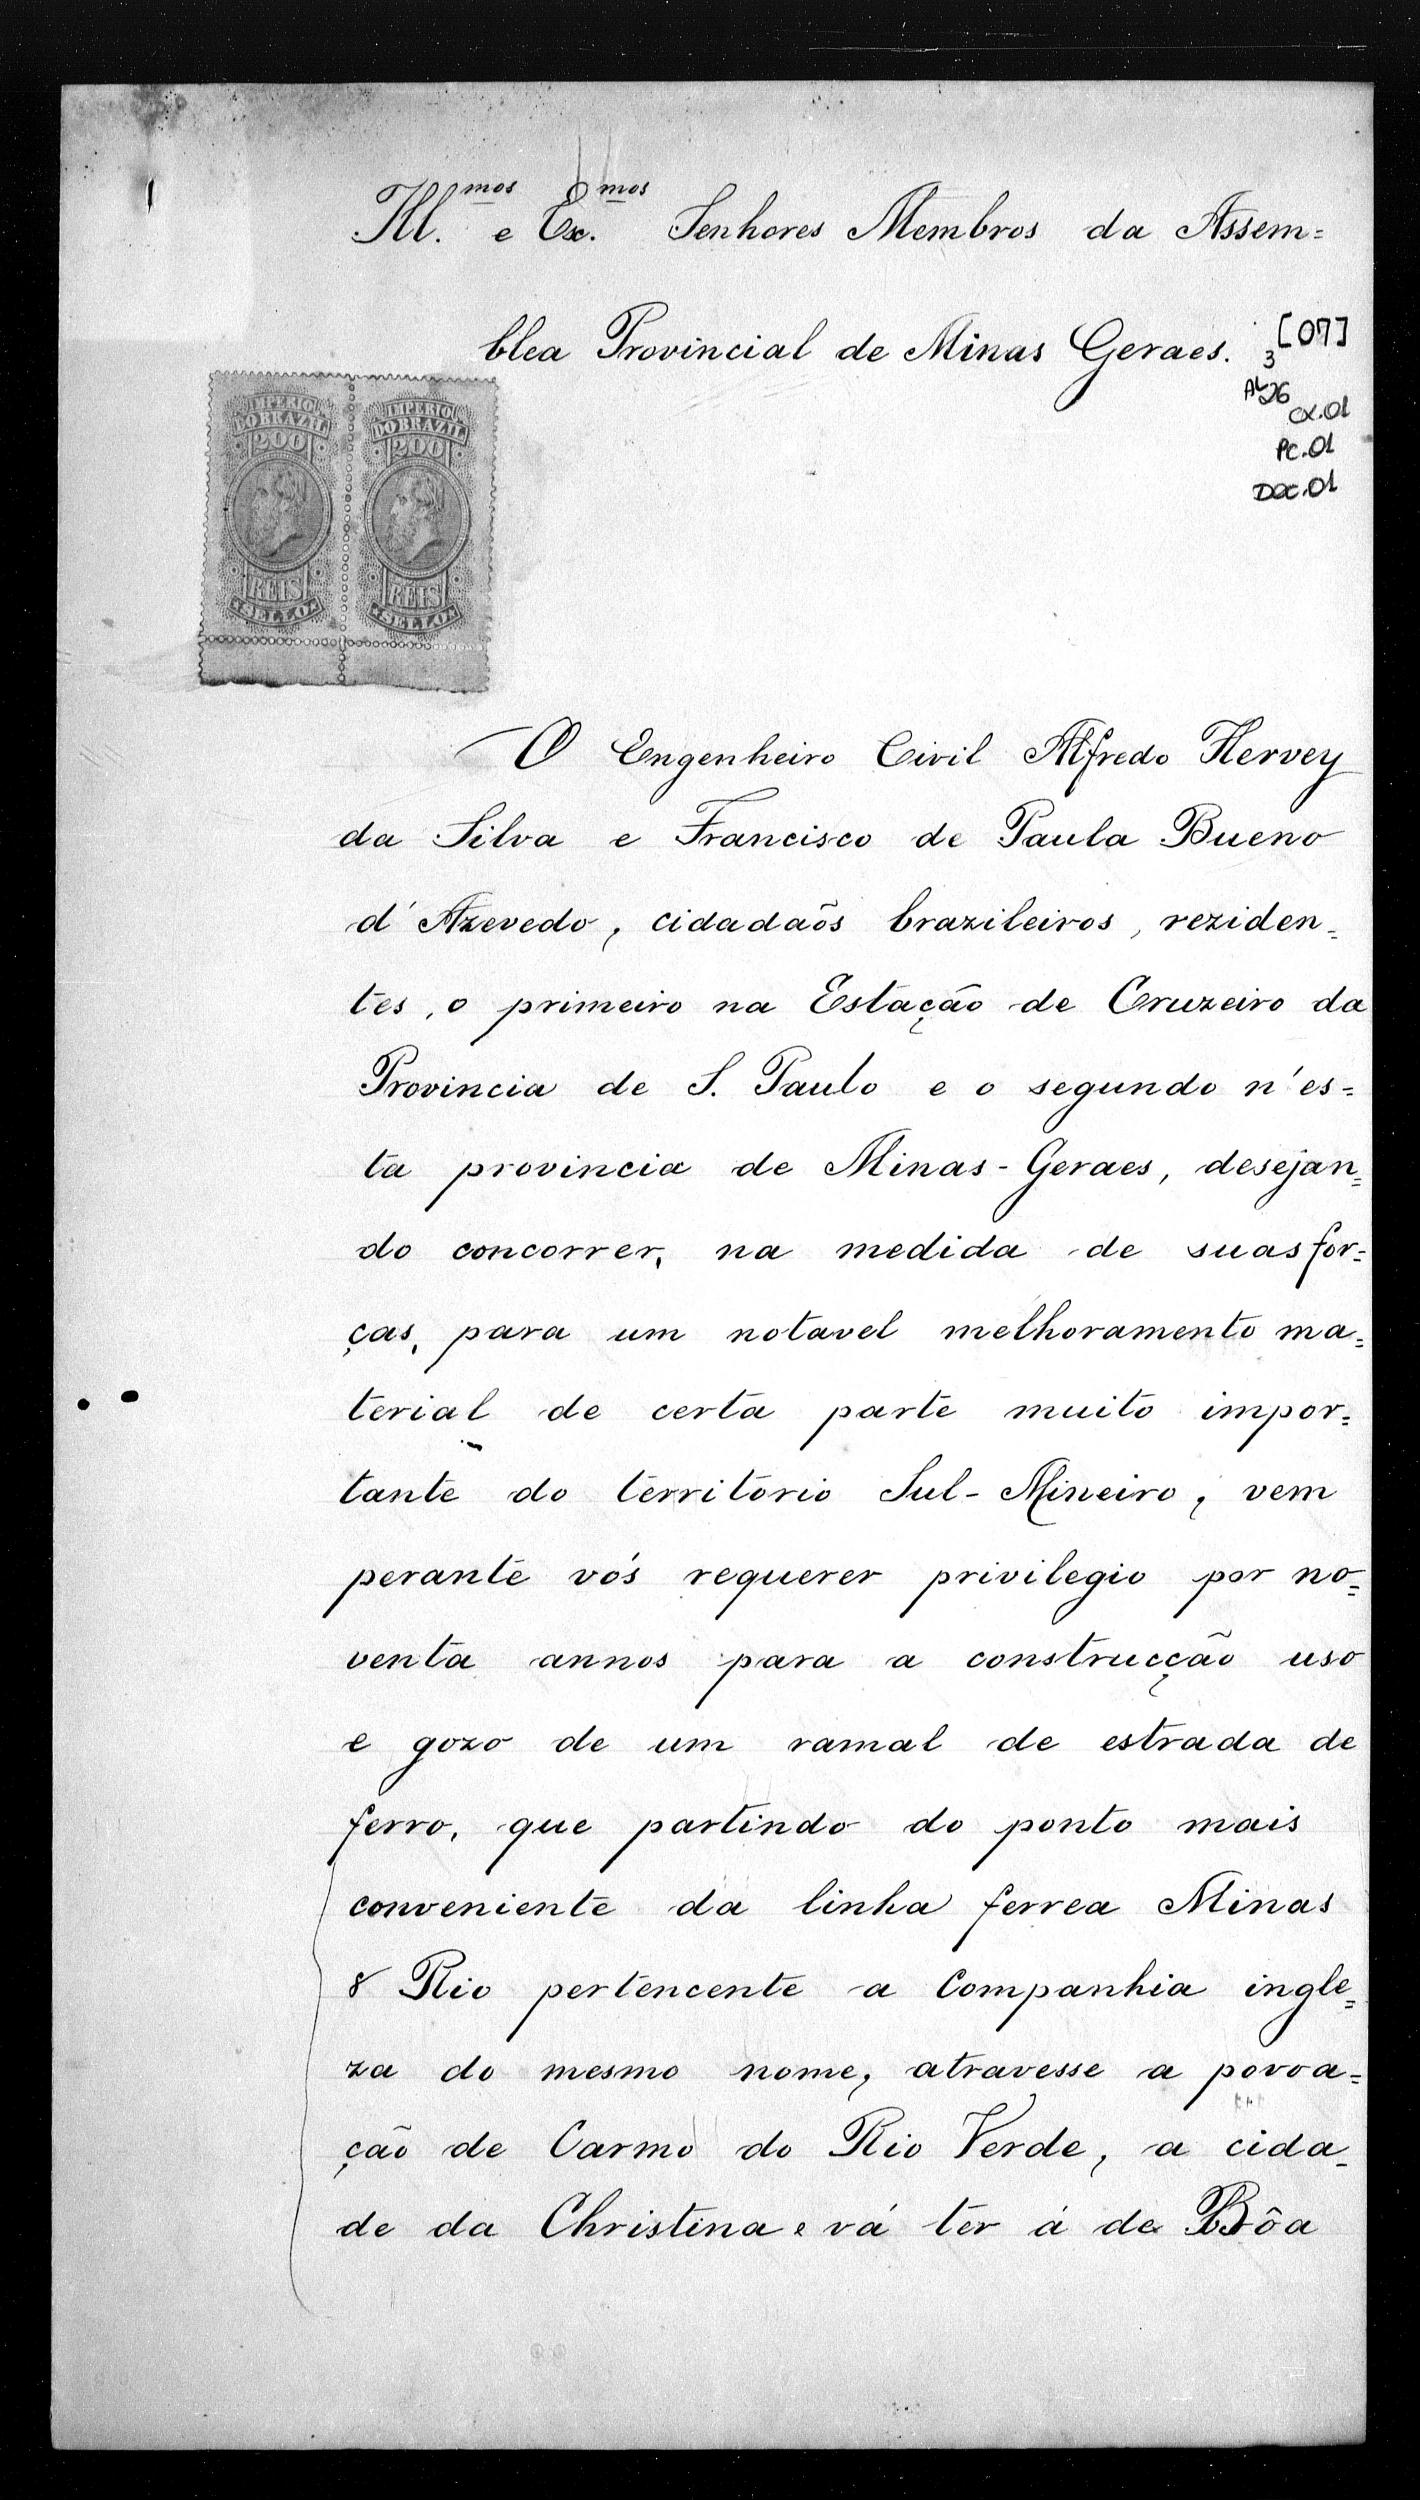 Ill.mos e Ex.mos Senhores Membros da Assem=
blea Provincial de Minas Geraes.
[07]
3
AL26
CX.01
PC.01
DOC.01
IMPERIO DO BRAZIL 200 REIS SELLO
IMPERIO DO BRAZIL 200 REIS SELLO
O Engenheiro Civil Alfredo Hervey
da Silva e Francisco de Paula Bueno
d'Azevedo, cidadaõs brazileiros, reziden=
tes, o primeiro na Estação de Cruzeiro da
Provincia de S. Paulo e o segundo n'es=
ta provincia de Minas-Geraes, desejan=
do concorrer, na medida de suas for=
ças, para um notavel melhoramento ma=
terial de certa parte muito impor=
tante do territorio Sul-Mineiro, vem
perante vós requerer privilegio por no=
venta annos para a construcção uso
e gozo de um ramal de estrada de
ferro, que partindo do ponto mais
conveniente da linha ferrea Minas
& Rio pertencente a Companhia ingle=
za do mesmo nome, atravesse a povoa=
ção de Carmo do Rio Verde, a cida=
de da Christina e vá ter á de Bôa